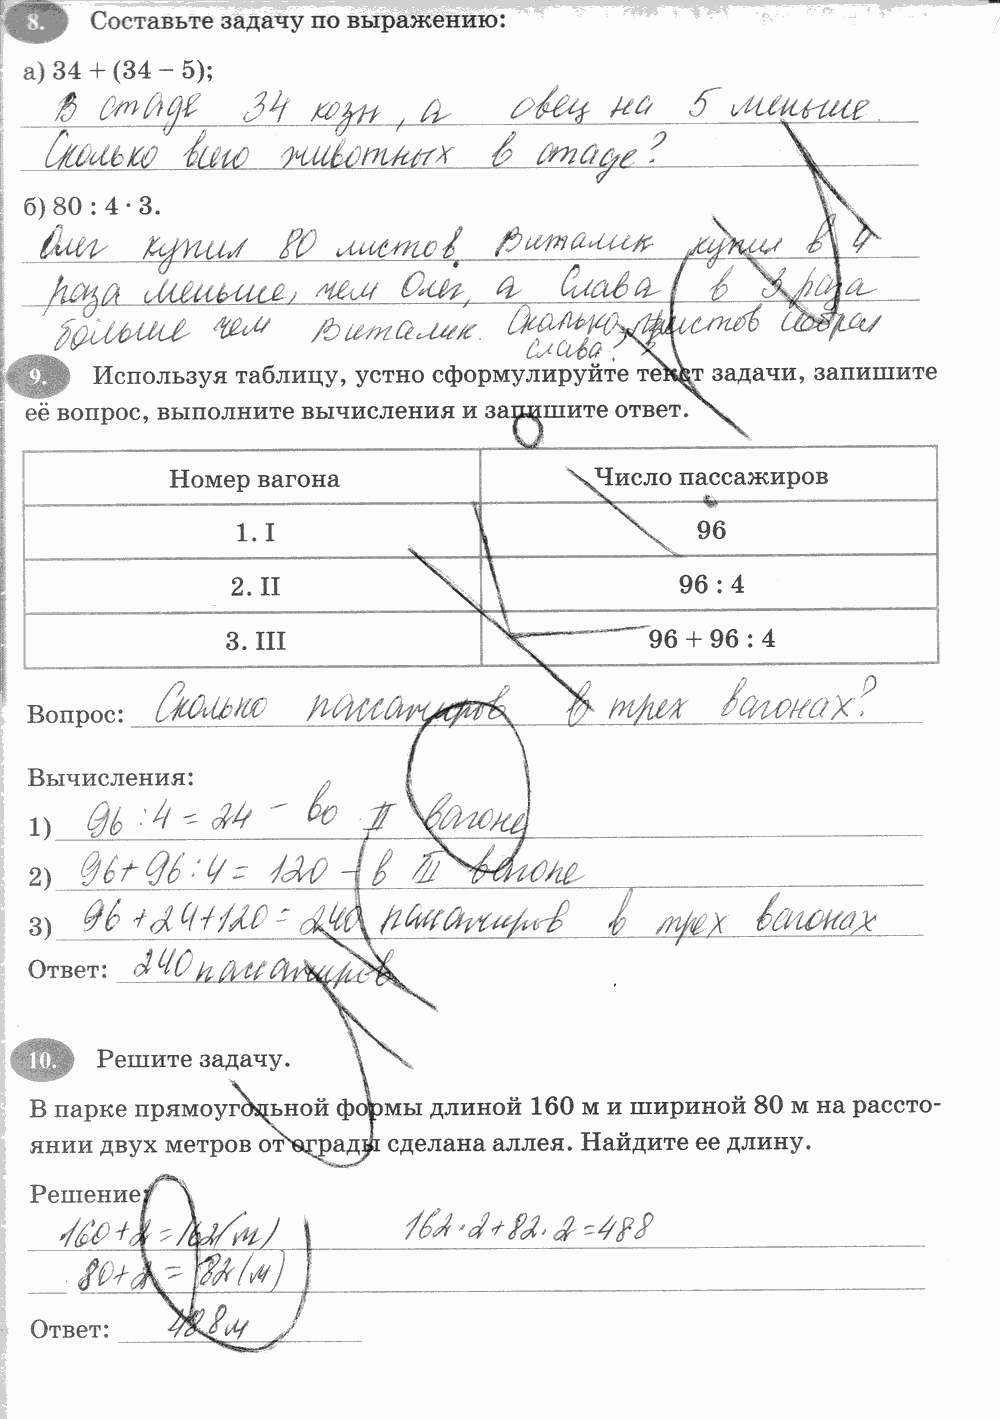 8. Составьте задачу по выражению:
а) 34 + (34 – 5);
В стаде 34 козы, а овец на 5 меньше.
Сколько всего животных в стаде?
б) 80 : 4 · 3.
Олег купил 80 листов. Виталик купил в 4
раза меньше, чем Олег, а Слава в 3 раза
больше чем Виталик. Сколько листов собрал
Слава?
9. Используя таблицу, устно сформулируйте текст задачи, запишите
её вопрос, выполните вычисления и запишите ответ.
Номер вагона Число пассажиров
1. I 96
2. II 96 : 4
3. III 96 + 96 : 4
Вопрос: Сколько пассажиров в трех вагонах?
Вычисления:
1) 96 : 4 = 24 – во II вагоне
2) 96 + 96 : 4 = 120 – в III вагоне
3) 96 + 24 + 120 = 240 пассажиров в трех вагонах
Ответ: 240 пассажиров
10. Решите задачу.
В парке прямоугольной формы длиной 160 м и шириной 80 м на рассто-
янии двух метров от ограды сделана аллея. Найдите ее длину.
Решение:
160 + 2 = 162 (м) 162 · 2 + 82 · 2 = 488
80 + 2 = 82 (м)
Ответ: 488 м